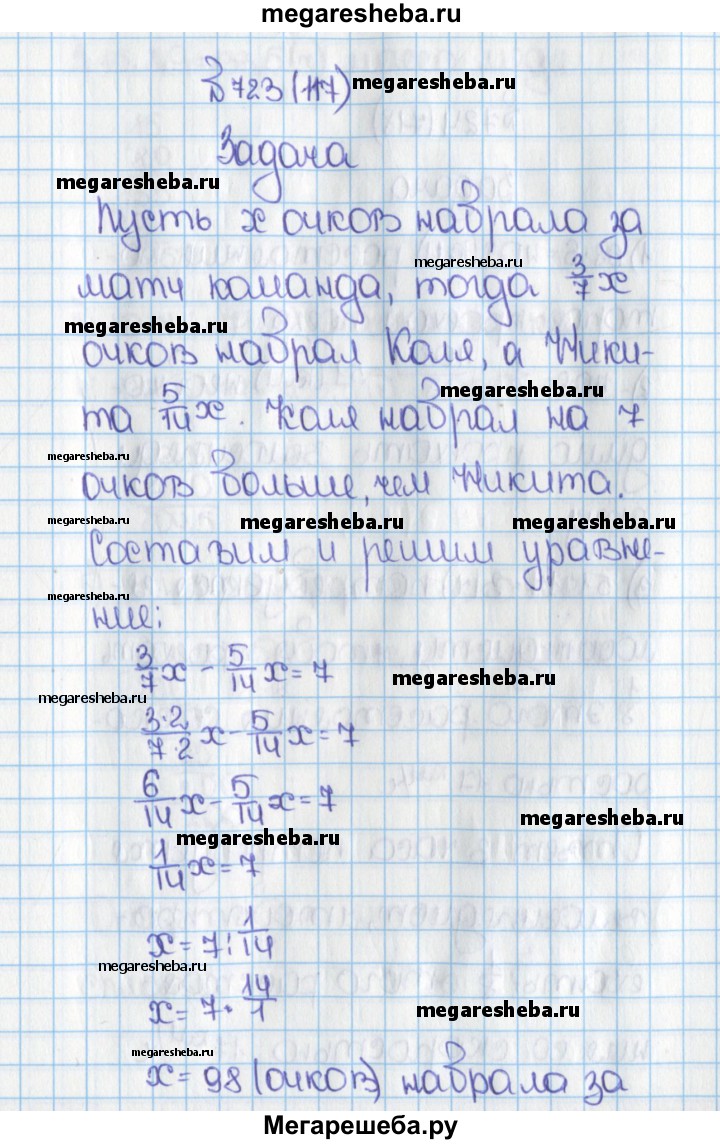 megaresheba.ru
№723(117) megaresheba.ru
Задача
megaresheba.ru
Пусть x очков набрала за
megaresheba.ru
матч команда, тогда 3/7 x
megaresheba.ru
очков набрал Коля, а Ники-
megaresheba.ru
та 5/14 x. Коля набрал на 7
megaresheba.ru
очков больше, чем Никита.
megaresheba.ru megaresheba.ru megaresheba.ru
Составим и решим уравне-
megaresheba.ru
ние:
3/7 x - 5/14 x = 7
megaresheba.ru
megaresheba.ru
3·2/7·2 x - 5/14 x = 7
6/14 x - 5/14 x = 7
megaresheba.ru
megaresheba.ru
1/14 x = 7
x = 7 : 1/14
megaresheba.ru
x = 7 · 14/1
megaresheba.ru
megaresheba.ru
x = 98 (очков) набрала за
Мегарешеба.ру